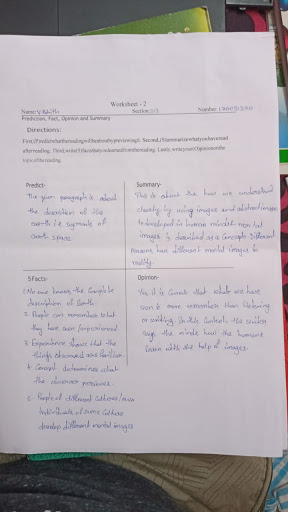 Worksheet - 2
Name: V. Rohith Section: S13 Number:
Prediction, Fact, Opinion and Summary
Directions:
First, Predict what the reading will be about by previewing it. Second, Summarize what you have read
after reading. Third, write 5 Facts that you learned from the reading. Lastly, write your Opinion on the
topic of the reading.
Predict-
The given paragraph is about
the description of the
earth i.e segments of
earth space.
Summary-
This is about the how we understand
clearly by using images and abstract images
is developed in human minds. mental
images is described as a concept. different
persons have different mental images to
reality.
5 Facts-
1. No one knows the complete
description of Earth.
2. People can remember what
they have seen/experienced
3. Experience shows that the
things observed are familiar.
4. Concept determines what
the observer perceives.
5. People of different cultures/even
individuals of same culture
develop different mental images
Opinion-
Yes, it is correct that what we have
seen is more remember than listening
or writing. In this context, the writer
says the minds how the humans
learn with the help of images.